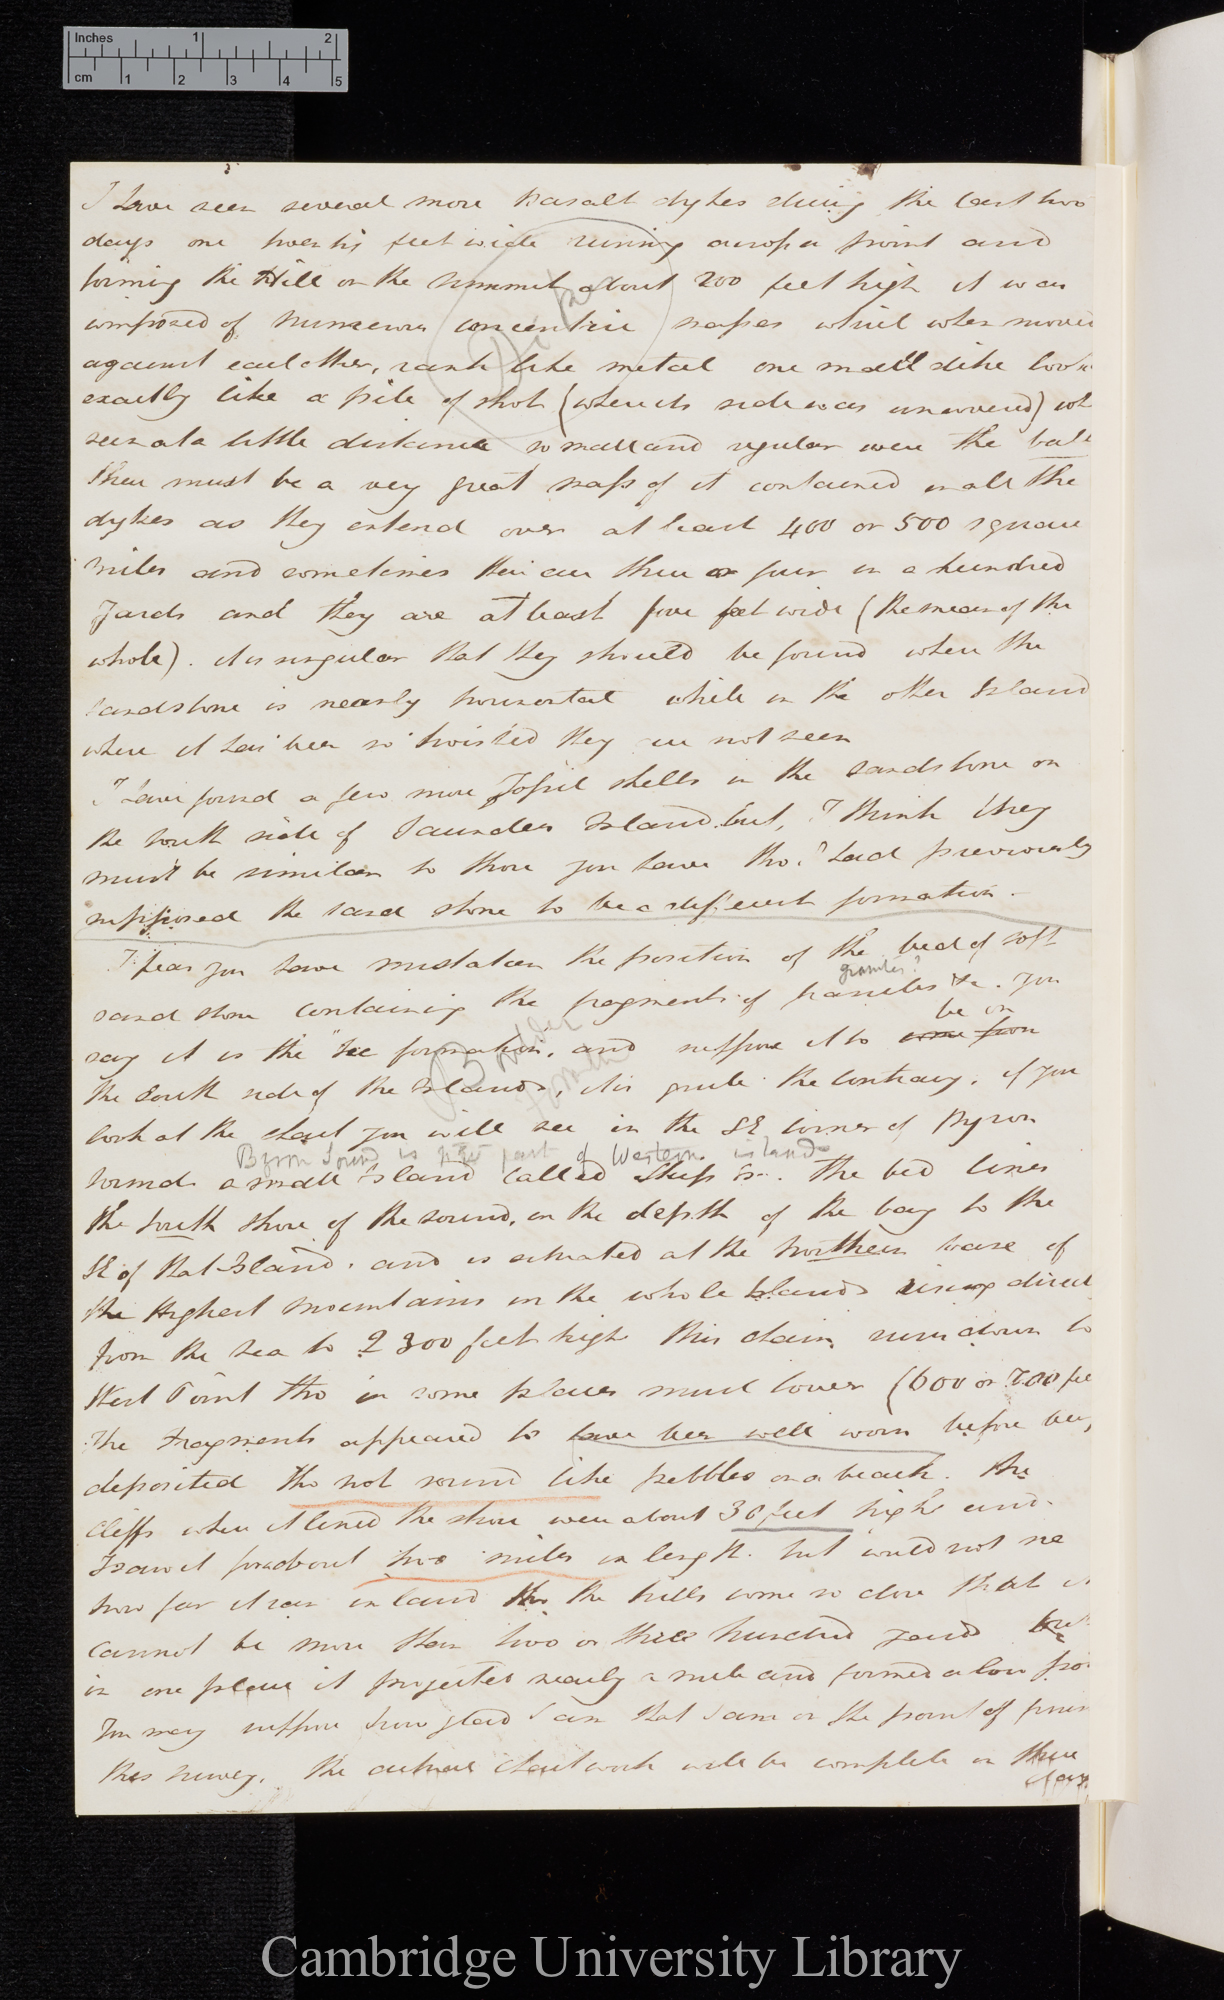 Inches 1 2
cm 1 2 3 4 5
I have seen several more Basalt dykes during the last two
days one twenty feet wide running across a point and
forming the Hill on the summit about 200 feet high it was
composed of numerous concentric masses which when moved
against each other, rank like metal one small dike looked
exactly like a pile of shot (where its side was uncovered) wh
seen at a little distance so small and regular were the ball
there must be a very great mass of it contained in all the
dykes as they extend over at least 400 or 500 square
miles and sometimes there are three or four in a hundred
yards and they are at least five feet wide (the mean of the
whole). it is singular that they should be found where the
sandstone is nearly horizontal while in the other Island
where it has been so twisted they are not seen
I have found a few more Fossil shells in the sandstone on
the south side of Saunders Island. but, I think they
must be similar to those you have tho. I had previously
supposed the sand stone to be a different formation.
I fear you have mistaken the position of the bed of soft
granites?
sand stone containing the fragments of granites &c. you
be on
say it is the "Tee formation", and suppose it to come from
Boulder
the South side of the Islands, it is quite the contrary. if you
look at the chart you will see in the SE corner of Byron
Byron Sound is part of Western island
Sound a small Island called Sheep Is. the bed lines
the South shore of the sound, in the depth of the bay to the
SE of that Island. and is situated at the northern base of
the Highest mountains in the whole Islands rising direct
from the sea to 2300 feet high this chain runs down to
West Point tho in some places much lower (600 or 700 fee
The fragments appeared to have been well worn before being
deposited tho not round like pebbles on a beach. the
cliffs where it lined the shore were about 30 feet high and
I saw it for about two miles in length. but could not see
how far it ran inland the hills come so close that it
cannot be more than two or three hundred yards but
in one place it projected nearly a mile and formed a low poi
You may suppose how glad I am that I am on the point of finis
this survey. the actual chart work will be complete in three
days
Cambridge University Library